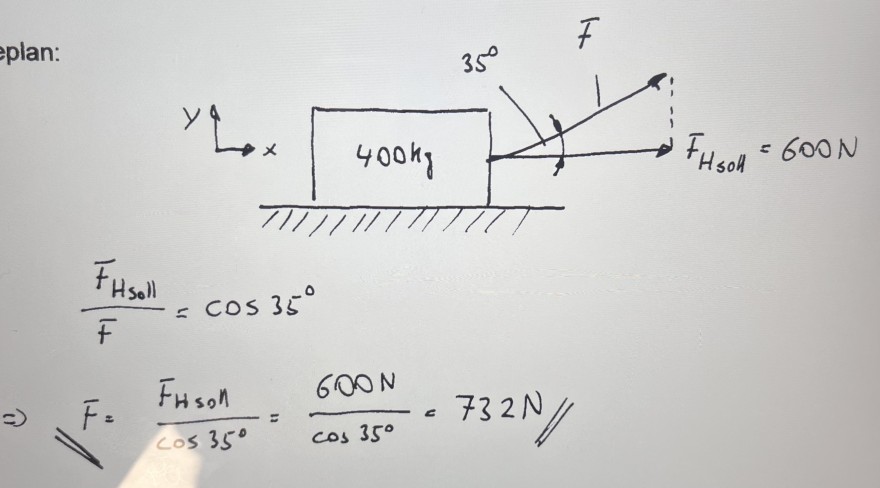 eplan:
F
35°
y
x
400kg
F_Hsoll = 600N
F_Hsoll / F = cos 35°
=> F = F_Hsoll / cos 35° = 600N / cos 35° = 732N